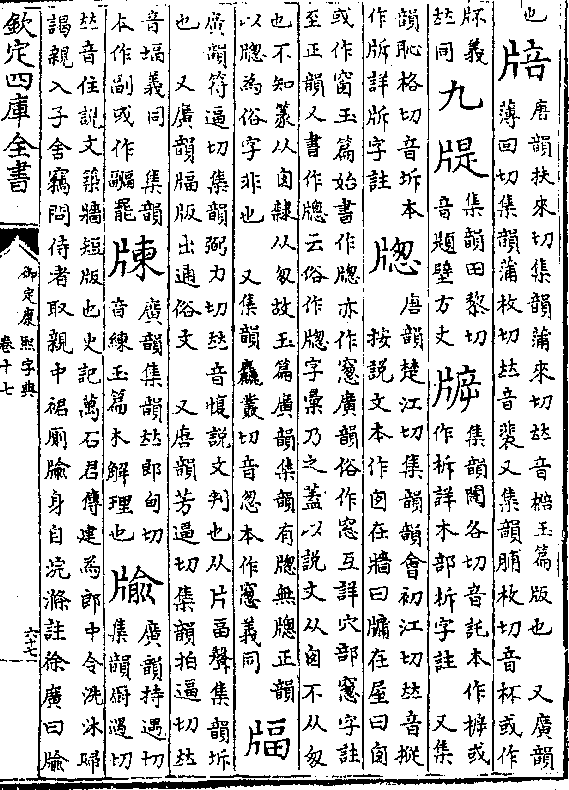 也
唐韻扶來切集韻蒲來切𠀤音棓玉篇版也 又廣韻
薄回切集韻蒲枚切𠀤音裴又集韻脯枚切音杯或作
義
𠀤同
九
集韻田黎切
音題壁方丈
集韻闥各切音託本作㯓或
作柝詳木部柝字註 又集
韻恥格切音坼本
作㸱詳㸱字註
牎
唐韻楚江切集韻韻會初江切𠀤音摐
按說文本作囱在牆曰牖在屋曰囱
或作窗玉篇始書作牎亦作窻廣韻俗作窓互詳穴部窻字註
至正韻又書作牕云俗作牎字彙乃之蓋以說文从囱不从匆
也不知篆从囱隸从匆故玉篇廣韻集韻有牎無牕正韻
以牎為俗字非也 又集韻麤叢切音怱本作窻義同
廣韻符逼切集韻弼力切𠀤音愎說文判也从片畐聲集韻坼
也 又廣韻版出通俗文 又唐韻芳逼切集韻拍逼切𠀤
音堛義同 集韻
本作副或作疈罷
廣韻集韻𠀤郎甸切
音練玉篇木解理也
牏
廣韻持遇切
集韻廚遇切
𠀤音住說文築牆短版也史記萬石君傳建為郎中令洗沐歸
謁親入子舍竊問侍者取親中裙廁牏身自浣滌註徐廣曰牏
欽定四庫全書
御定康熙字典
卷十七
六十七